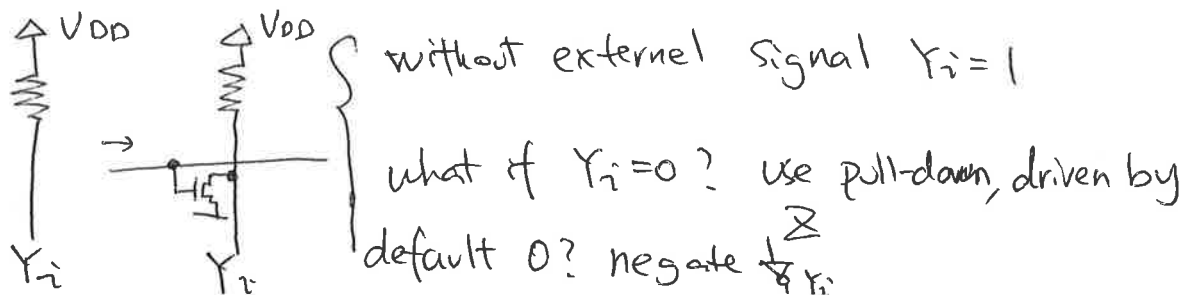 VDD
VDD
without externel signal Yi = 1
what if Yi=0? use pull-down, driven by
Z
default 0? negate
Yi
Yi
Yi